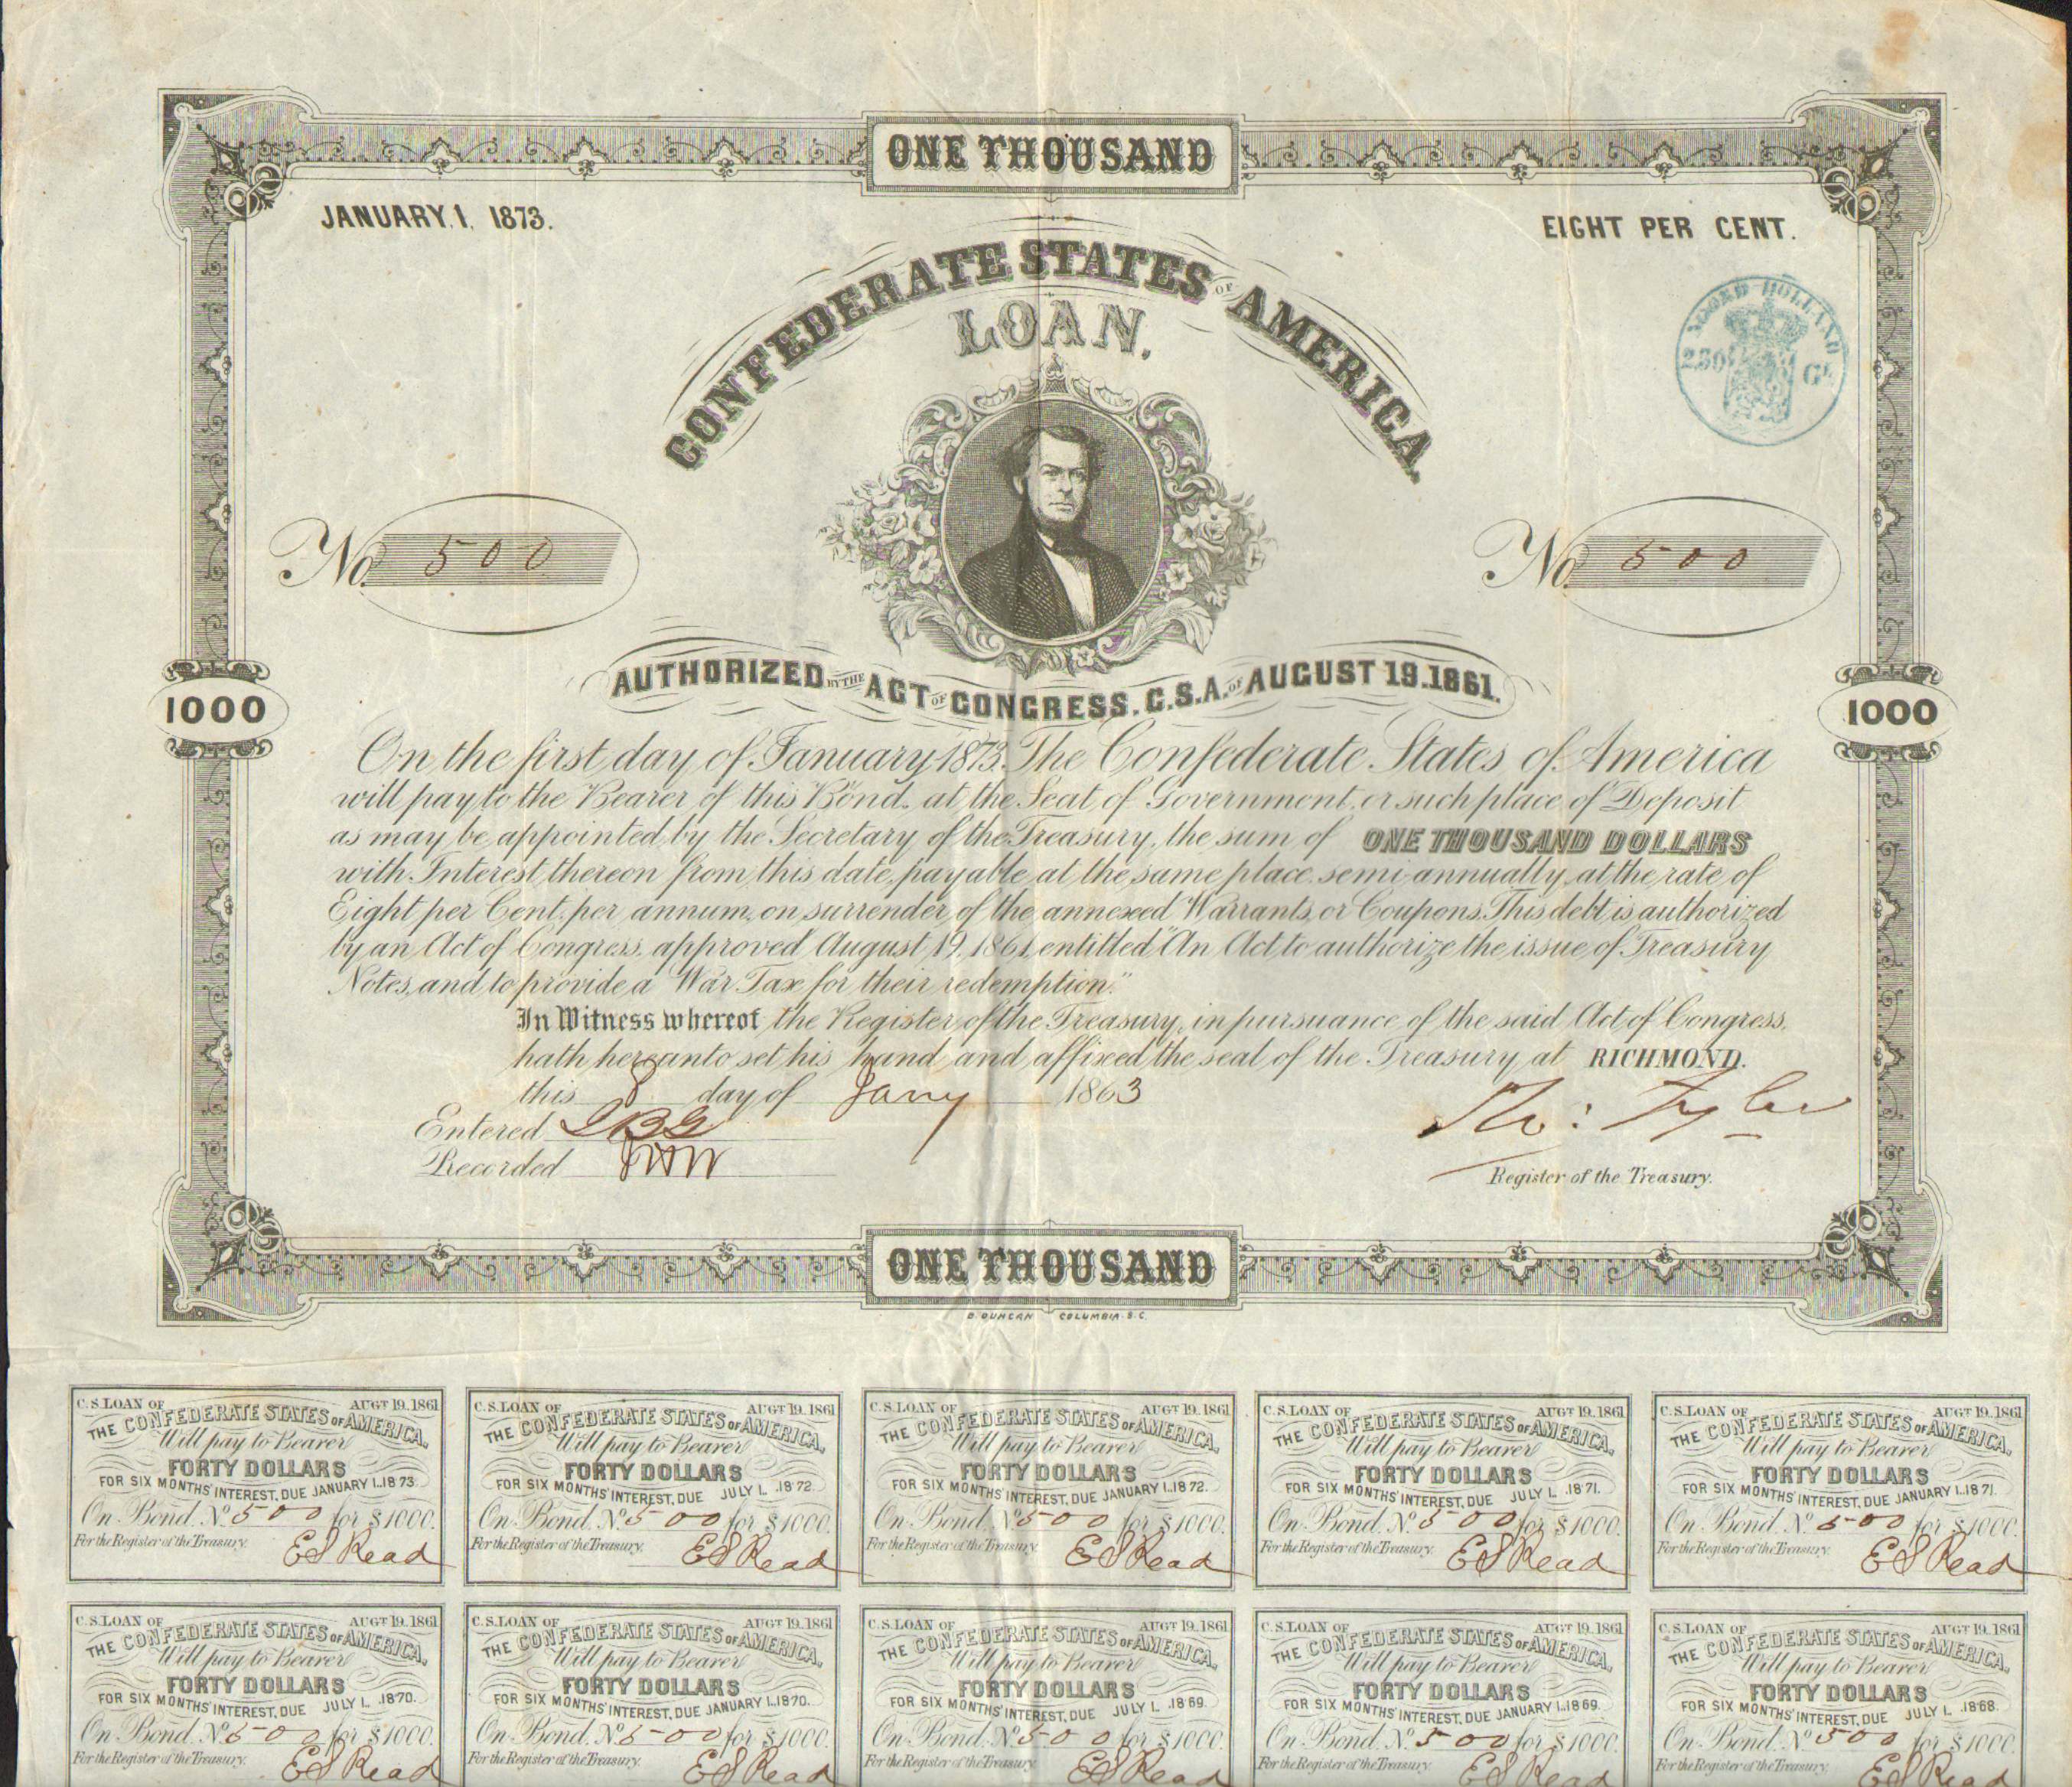 ONE THOUSAND
JANUARY. 1. 1873.
EIGHT PER CENT.
CONFEDERATE STATES OF AMERICA.
LOAN.
NOORD-HOLLAND
230 Gs
No 500
No 500
AUTHORIZED BY THE ACT OF CONGRESS. C.S.A. OF AUGUST 19. 1861.
1000
1000
On the first day of January 1873. The Confederate States of America
will pay to the Bearer of this Bond, at the Seat of Government, or such place of Deposit
as may be appointed by the Secretary of the Treasury, the sum of ONE THOUSAND DOLLARS
with Interest thereon from this date, payable at the same place semi-annually, at the rate of
Eight per Cent, per annum, on surrender of the annexed Warrants, or Coupons. This debt is authorized
by an Act of Congress, approved August 19, 1861, entitled "An Act to authorize the issue of Treasury
Notes, and to provide a War Tax for their redemption."
In Witness whereof the Register of the Treasury, in pursuance of the said Act of Congress,
hath hereunto set his hand and affixed the seal of the Treasury, at RICHMOND.
this 8 day of Jany 1863
Entered
Recorded
Tyler
Register of the Treasury.
ONE THOUSAND
B. DUNCAN COLUMBIA. S.C.
C.S. LOAN OF AUGT 19. 1861
THE CONFEDERATE STATES OF AMERICA,
Will pay to Bearer
FORTY DOLLARS
FOR SIX MONTHS' INTEREST, DUE JANUARY 1. 1873
On Bond. No 500 for $1000.
For the Register of the Treasury.
E S Read
C.S. LOAN OF AUGT 19. 1861
THE CONFEDERATE STATES OF AMERICA,
Will pay to Bearer
FORTY DOLLARS
FOR SIX MONTHS' INTEREST, DUE JULY 1. 1872.
On Bond. No 500 for $1000.
For the Register of the Treasury.
E S Read
C.S. LOAN OF AUGT 19. 1861
THE CONFEDERATE STATES OF AMERICA,
Will pay to Bearer
FORTY DOLLARS
FOR SIX MONTHS' INTEREST, DUE JANUARY 1. 1872.
On Bond. No 500 for $1000.
For the Register of the Treasury.
E S Read
C.S. LOAN OF AUGT 19. 1861
THE CONFEDERATE STATES OF AMERICA,
Will pay to Bearer
FORTY DOLLARS
FOR SIX MONTHS' INTEREST, DUE JULY 1. 1871.
On Bond. No 500 for $1000.
For the Register of the Treasury.
E S Read
C.S. LOAN OF AUGT 19. 1861
THE CONFEDERATE STATES OF AMERICA,
Will pay to Bearer
FORTY DOLLARS
FOR SIX MONTHS' INTEREST, DUE JANUARY 1. 1871.
On Bond. No 500 for $1000.
For the Register of the Treasury.
E S Read
C.S. LOAN OF AUGT 19. 1861
THE CONFEDERATE STATES OF AMERICA,
Will pay to Bearer
FORTY DOLLARS
FOR SIX MONTHS' INTEREST, DUE JULY 1. 1870.
On Bond. No 500 for $1000.
For the Register of the Treasury.
E S Read
C.S. LOAN OF AUGT 19. 1861
THE CONFEDERATE STATES OF AMERICA,
Will pay to Bearer
FORTY DOLLARS
FOR SIX MONTHS' INTEREST, DUE JANUARY 1. 1870.
On Bond. No 500 for $1000.
For the Register of the Treasury.
E S Read
C.S. LOAN OF AUGT 19. 1861
THE CONFEDERATE STATES OF AMERICA,
Will pay to Bearer
FORTY DOLLARS
FOR SIX MONTHS' INTEREST, DUE JULY 1. 1869.
On Bond. No 500 for $1000.
For the Register of the Treasury.
E S Read
C.S. LOAN OF AUGT 19. 1861
THE CONFEDERATE STATES OF AMERICA,
Will pay to Bearer
FORTY DOLLARS
FOR SIX MONTHS' INTEREST, DUE JANUARY 1. 1869.
On Bond. No 500 for $1000.
For the Register of the Treasury.
E S Read
C.S. LOAN OF AUGT 19. 1861
THE CONFEDERATE STATES OF AMERICA,
Will pay to Bearer
FORTY DOLLARS
FOR SIX MONTHS' INTEREST, DUE JULY 1. 1868.
On Bond. No 500 for $1000.
For the Register of the Treasury.
E S Read